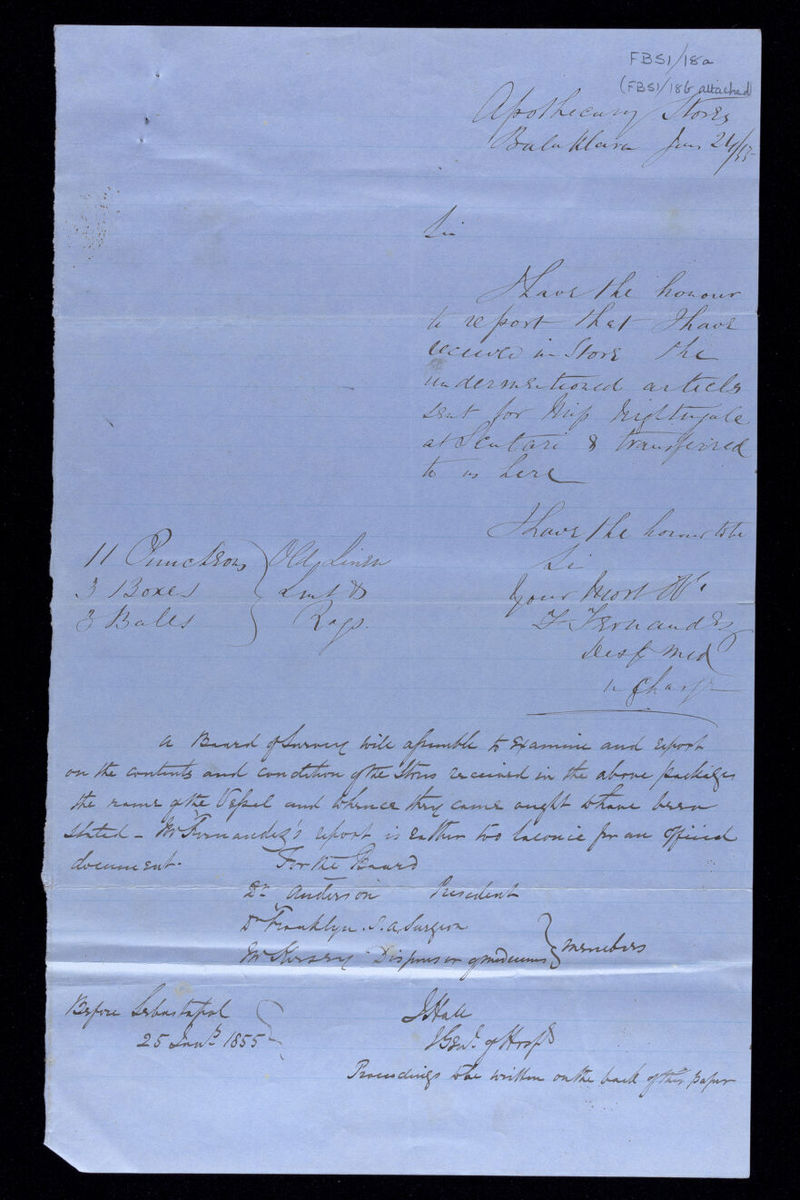 FBS1/18a
(FBS1/18b attached)
Apothecary Stores
Balaklava Jan 24/55
Sir
I have the honour
to report that I have
received in Store the
undermentioned articles
sent for Miss Nightingale
at Scutari & transferred
to us here
I have the honour to be
Sir
Your Most
F Fernandez
Disp Med
in Charge
11 Puncheons
3 Boxes
3 Bales
Old Linen
Lint &
Rags.
A Board of Survey will assemble to examine and report
on the contents and condition of the Stores received in the above packages
the name of the Vessel and whence they came ought to have been
stated - Mr Fernandez's report is rather too laconic for an official
document.
For the Board
Dr Anderson President
Dr Franklyn S.A. Surgeon
Mr Kersey Dispenser of medicines
members
Before Sebastopol
25 Jany. 1855
J Hall
I Genl. of Hospls
Proceedings to be written on the back of this paper